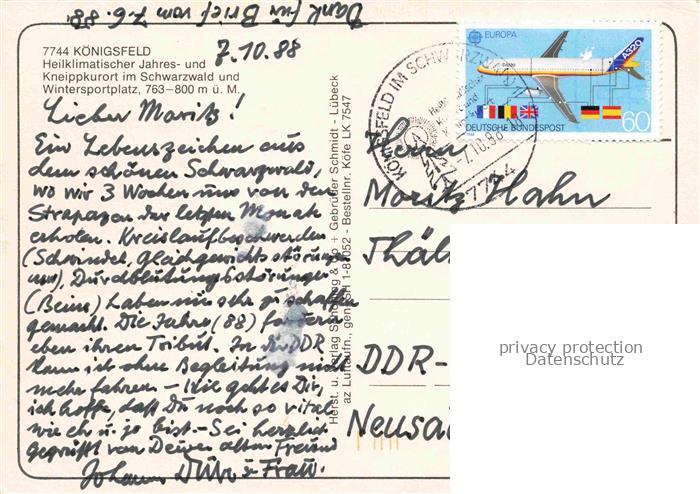 Dank für Brief vom 7.6. 88.
7744 KÖNIGSFELD
Heilklimatischer Jahres- und
Kneippkurort im Schwarzwald und
Wintersportplatz, 763–800 m ü. M.
7.10.88
Lieber Moritz!
Ein Lebenszeichen aus
dem schönen Schwarzwald,
wo wir 3 Wochen uns von den
Strapazen der letzten Monate
erholen. Kreislaufbeschwerden
(Schwindel, Gleichgewichtsstörungen
usw), Durchblutungsstörungen
(Beine) haben mir sehr zu schaffen
gemacht. Die Jahre (88) fordern
eben ihren Tribut. In die DDR
kann ich ohne Begleitung nicht
mehr fahren – Wie geht es Dir,
ich hoffe, daß Du noch so vital
wie eh u. je bist – Sei herzlich
gegrüßt von Deinem alten Freund
Johannes u. Frau.
Herst. u. Verlag Schöning & Co + Gebrüder Schmidt - Lübeck
az Luftaufn., gen. SH 1-81052 - Bestellnr. Köfe LK 7547
KÖNIGSFELD IM SCHWARZWALD
-7.10.88
7744
EUROPA
A320
DEUTSCHE BUNDESPOST
60
Herrn
Moritz Hahn
DDR-
privacy protection
Datenschutz